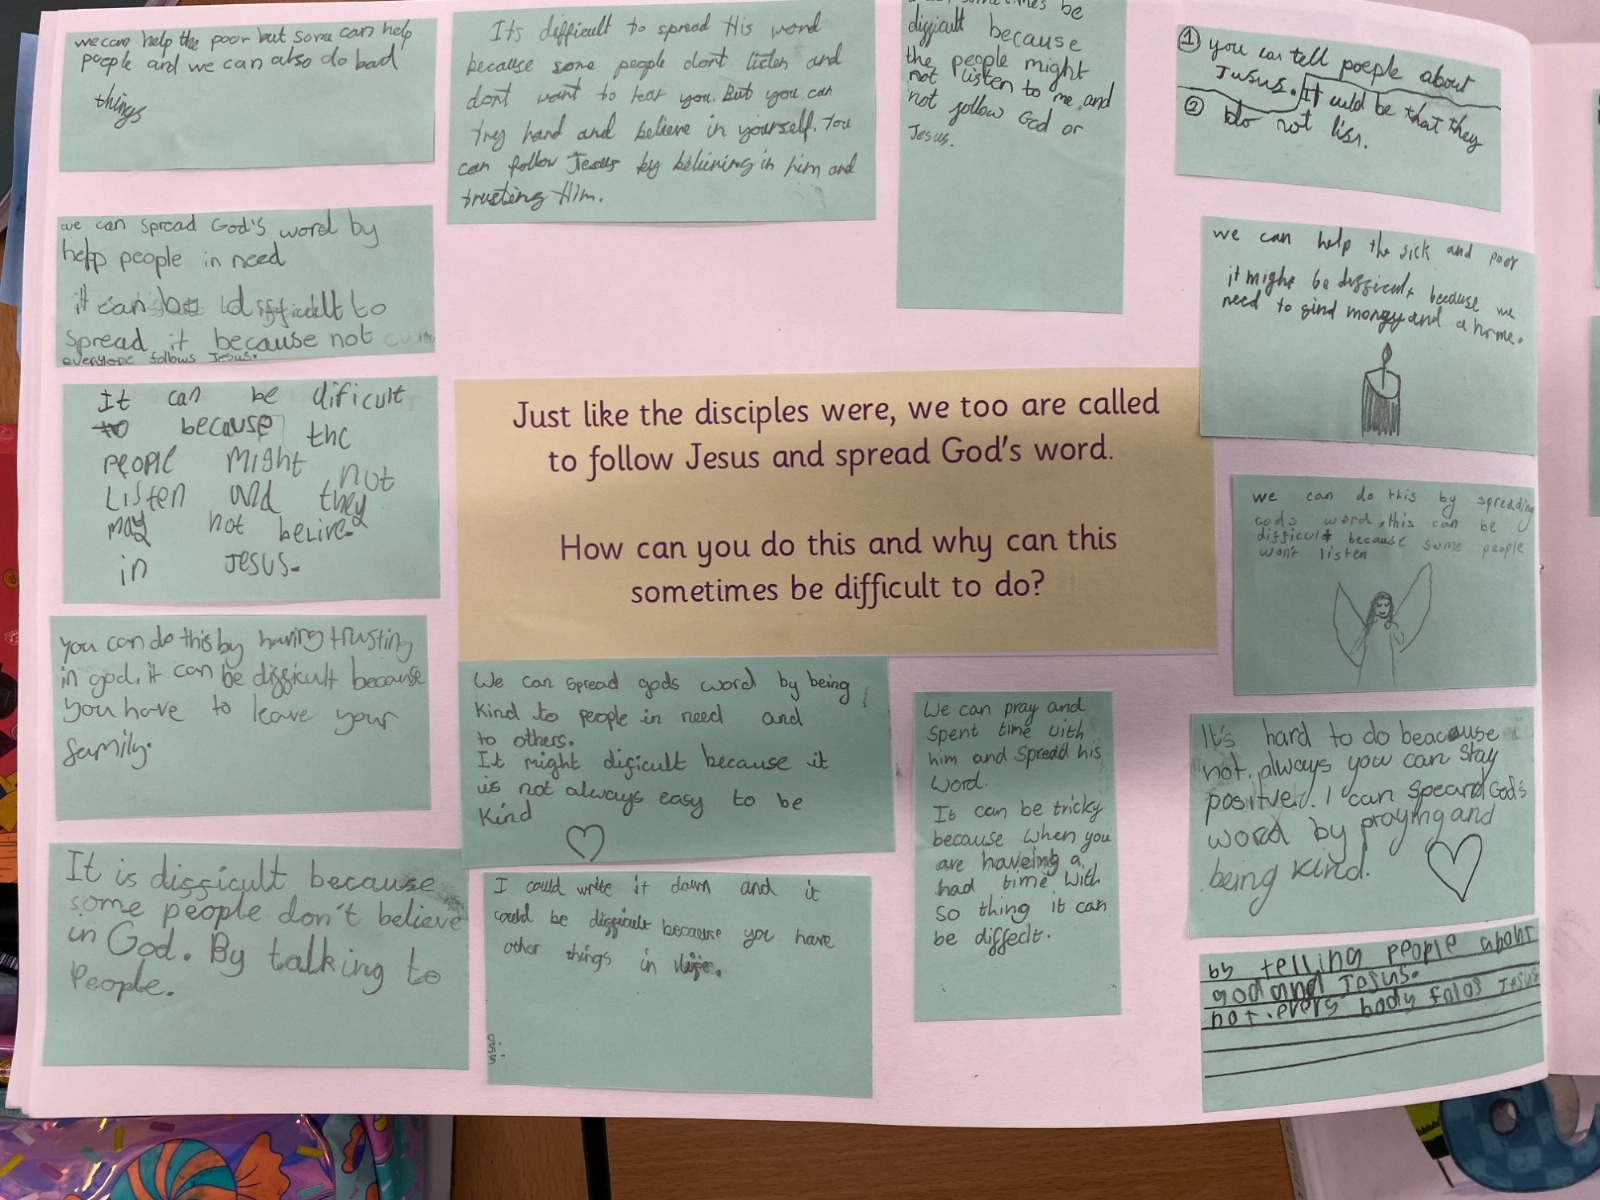 we can help the poor but some can help
poeple and we can also do bad
things
Its difficult to spread His word
because some people dont listen and
dont want to hear you. But you can
trey hard and believe in yourself. You
can follow Jesus by beliining in him and
trusting Him.
sometimes be
difficult because
the people might
not listen to me and
not follow God or
Jesus.
① you can tell poeple about
Jusus. It culd be that they
② do not lisn.
we can spread God's word by
help people in need
it can be difficult to
spread it because not
everyone follows Jesus.
we can help the sick and poor
it might be difficult because we
need to find money and a home.
It can be dificult
because the
people might not
listen and they
may not belive
in Jesus.
Just like the disciples were, we too are called
to follow Jesus and spread God's word.
How can you do this and why can this
sometimes be difficult to do?
we can do this by spreading
gods word, this can be
difficult because some people
won't listen
you can do this by having trusting
in god, it can be difficult because
you have to leave your
family.
We can spread gods word by being
kind to people in need and
to others.
It might dificult because it
is not always easy to be
kind
We can pray and
spent time with
him and spread his
word.
It can be tricky
because when you
are haveing a
had time with
so thing it can
be diffeclt.
It's hard to do beacause
not always you can stay
positive. I can speard God's
word by praying and
being kind.
It is difficult because
some people don't believe
in God. By talking to
People.
I could write it down and it
could be difficult because you have
other things in life.
by telling people about
god and Jesus.
not. evers body falos Jesus